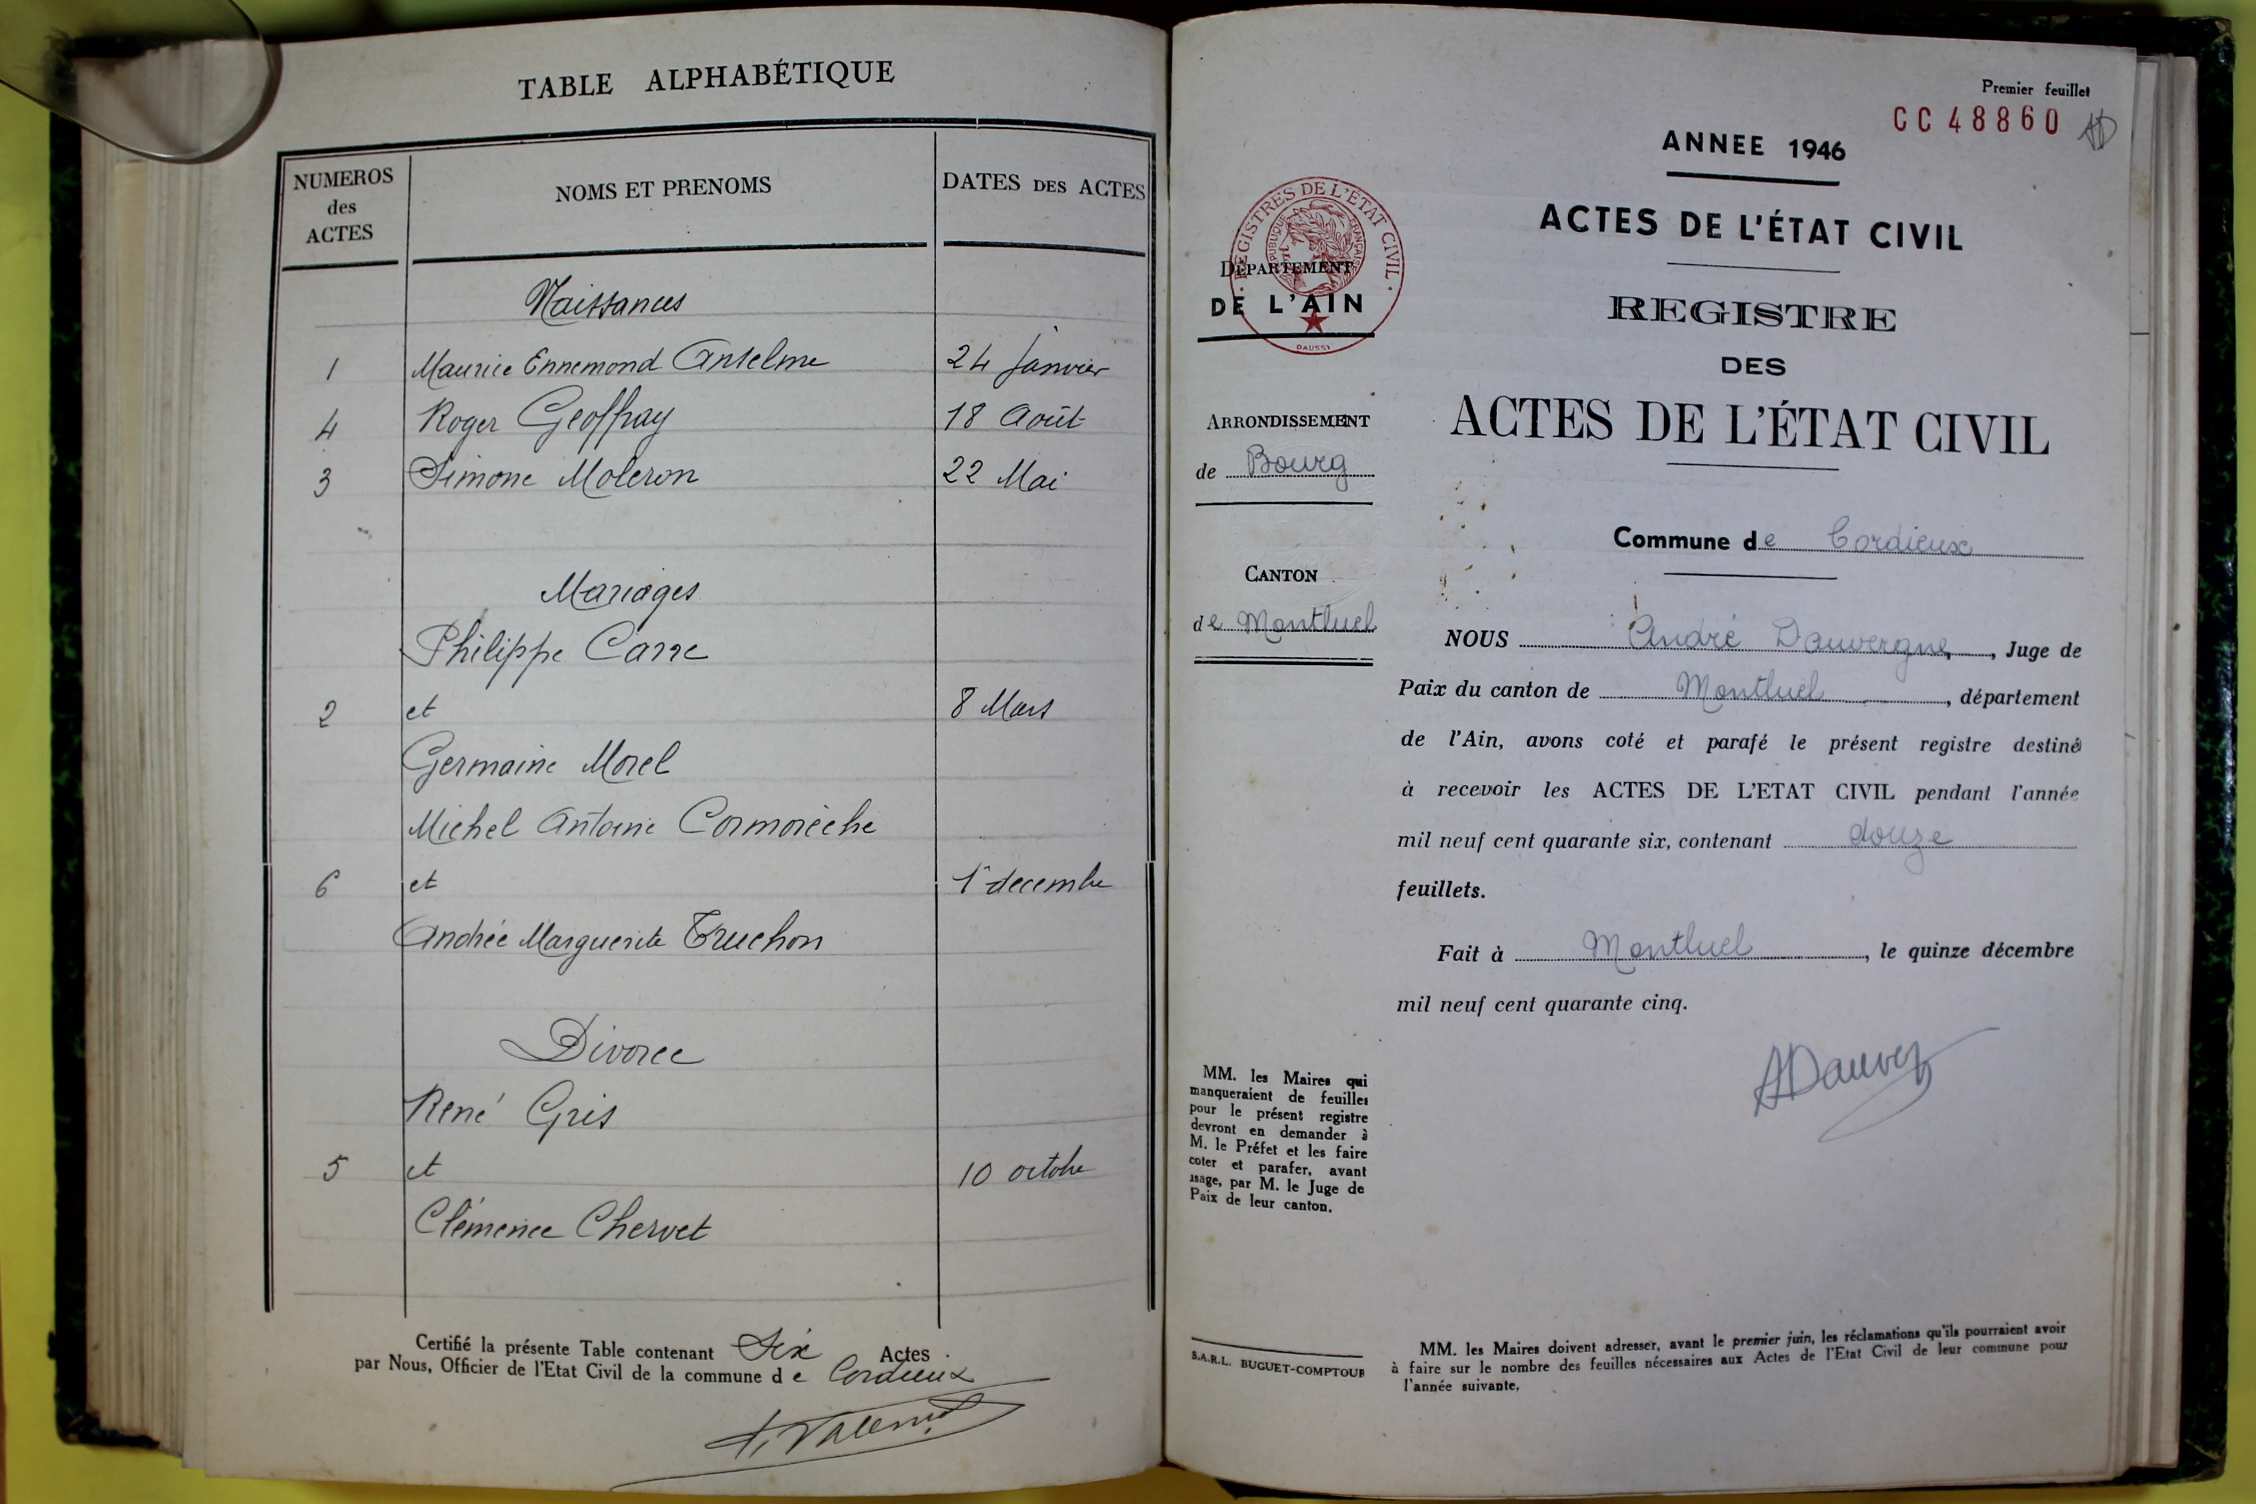 TABLE ALPHABÉTIQUE
NUMEROS
des
ACTES
NOMS ET PRENOMS
DATES DES ACTES
Naissances
1 Maurice Ennemond Anselme 24 Janvier
4 Roger Geoffray 18 Août
3 Simone Moleron 22 Mai
Mariages
Philippe Carre
2 et 8 Mars
Germaine Morel
Michel Antoine Cormorèche
6 et 1er decembre
Andrée Marguerite Truchon
Divorce
René Gris
5 et 10 octobre
Clémence Chervet
Certifié la présente Table contenant Six Actes
par Nous, Officier de l'Etat Civil de la commune d e Cordieux
Premier feuillet
CC 48860
ANNEE 1946
ACTES DE L'ÉTAT CIVIL
REGISTRE
DES
ACTES DE L'ÉTAT CIVIL
REGISTRES DE L'ETAT CIVIL
REPUBLIQUE FRANÇAISE
DAUSSY
DÉPARTEMENT
DE L'AIN
ARRONDISSEMENT
de Bourg
CANTON
de Montluel
Commune de Cordieux
NOUS André Dauvergne, , Juge de
Paix du canton de Montluel, département
de l'Ain, avons coté et parafé le présent registre destiné
à recevoir les ACTES DE L'ETAT CIVIL pendant l'année
mil neuf cent quarante six, contenant douze
feuillets.
Fait à Montluel, le quinze décembre
mil neuf cent quarante cinq.
ADauver
MM. les Maires qui
manqueraient de feuilles
pour le présent registre
devront en demander à
M. le Préfet et les faire
coter et parafer, avant
usage, par M. le Juge de
Paix de leur canton.
S.A.R.L. BUGUET-COMPTOUR
MM. les Maires doivent adresser, avant le premier juin, les réclamations qu'ils pourraient avoir
à faire sur le nombre des feuilles nécessaires aux Actes de l'Etat Civil de leur commune pour
l'année suivante.